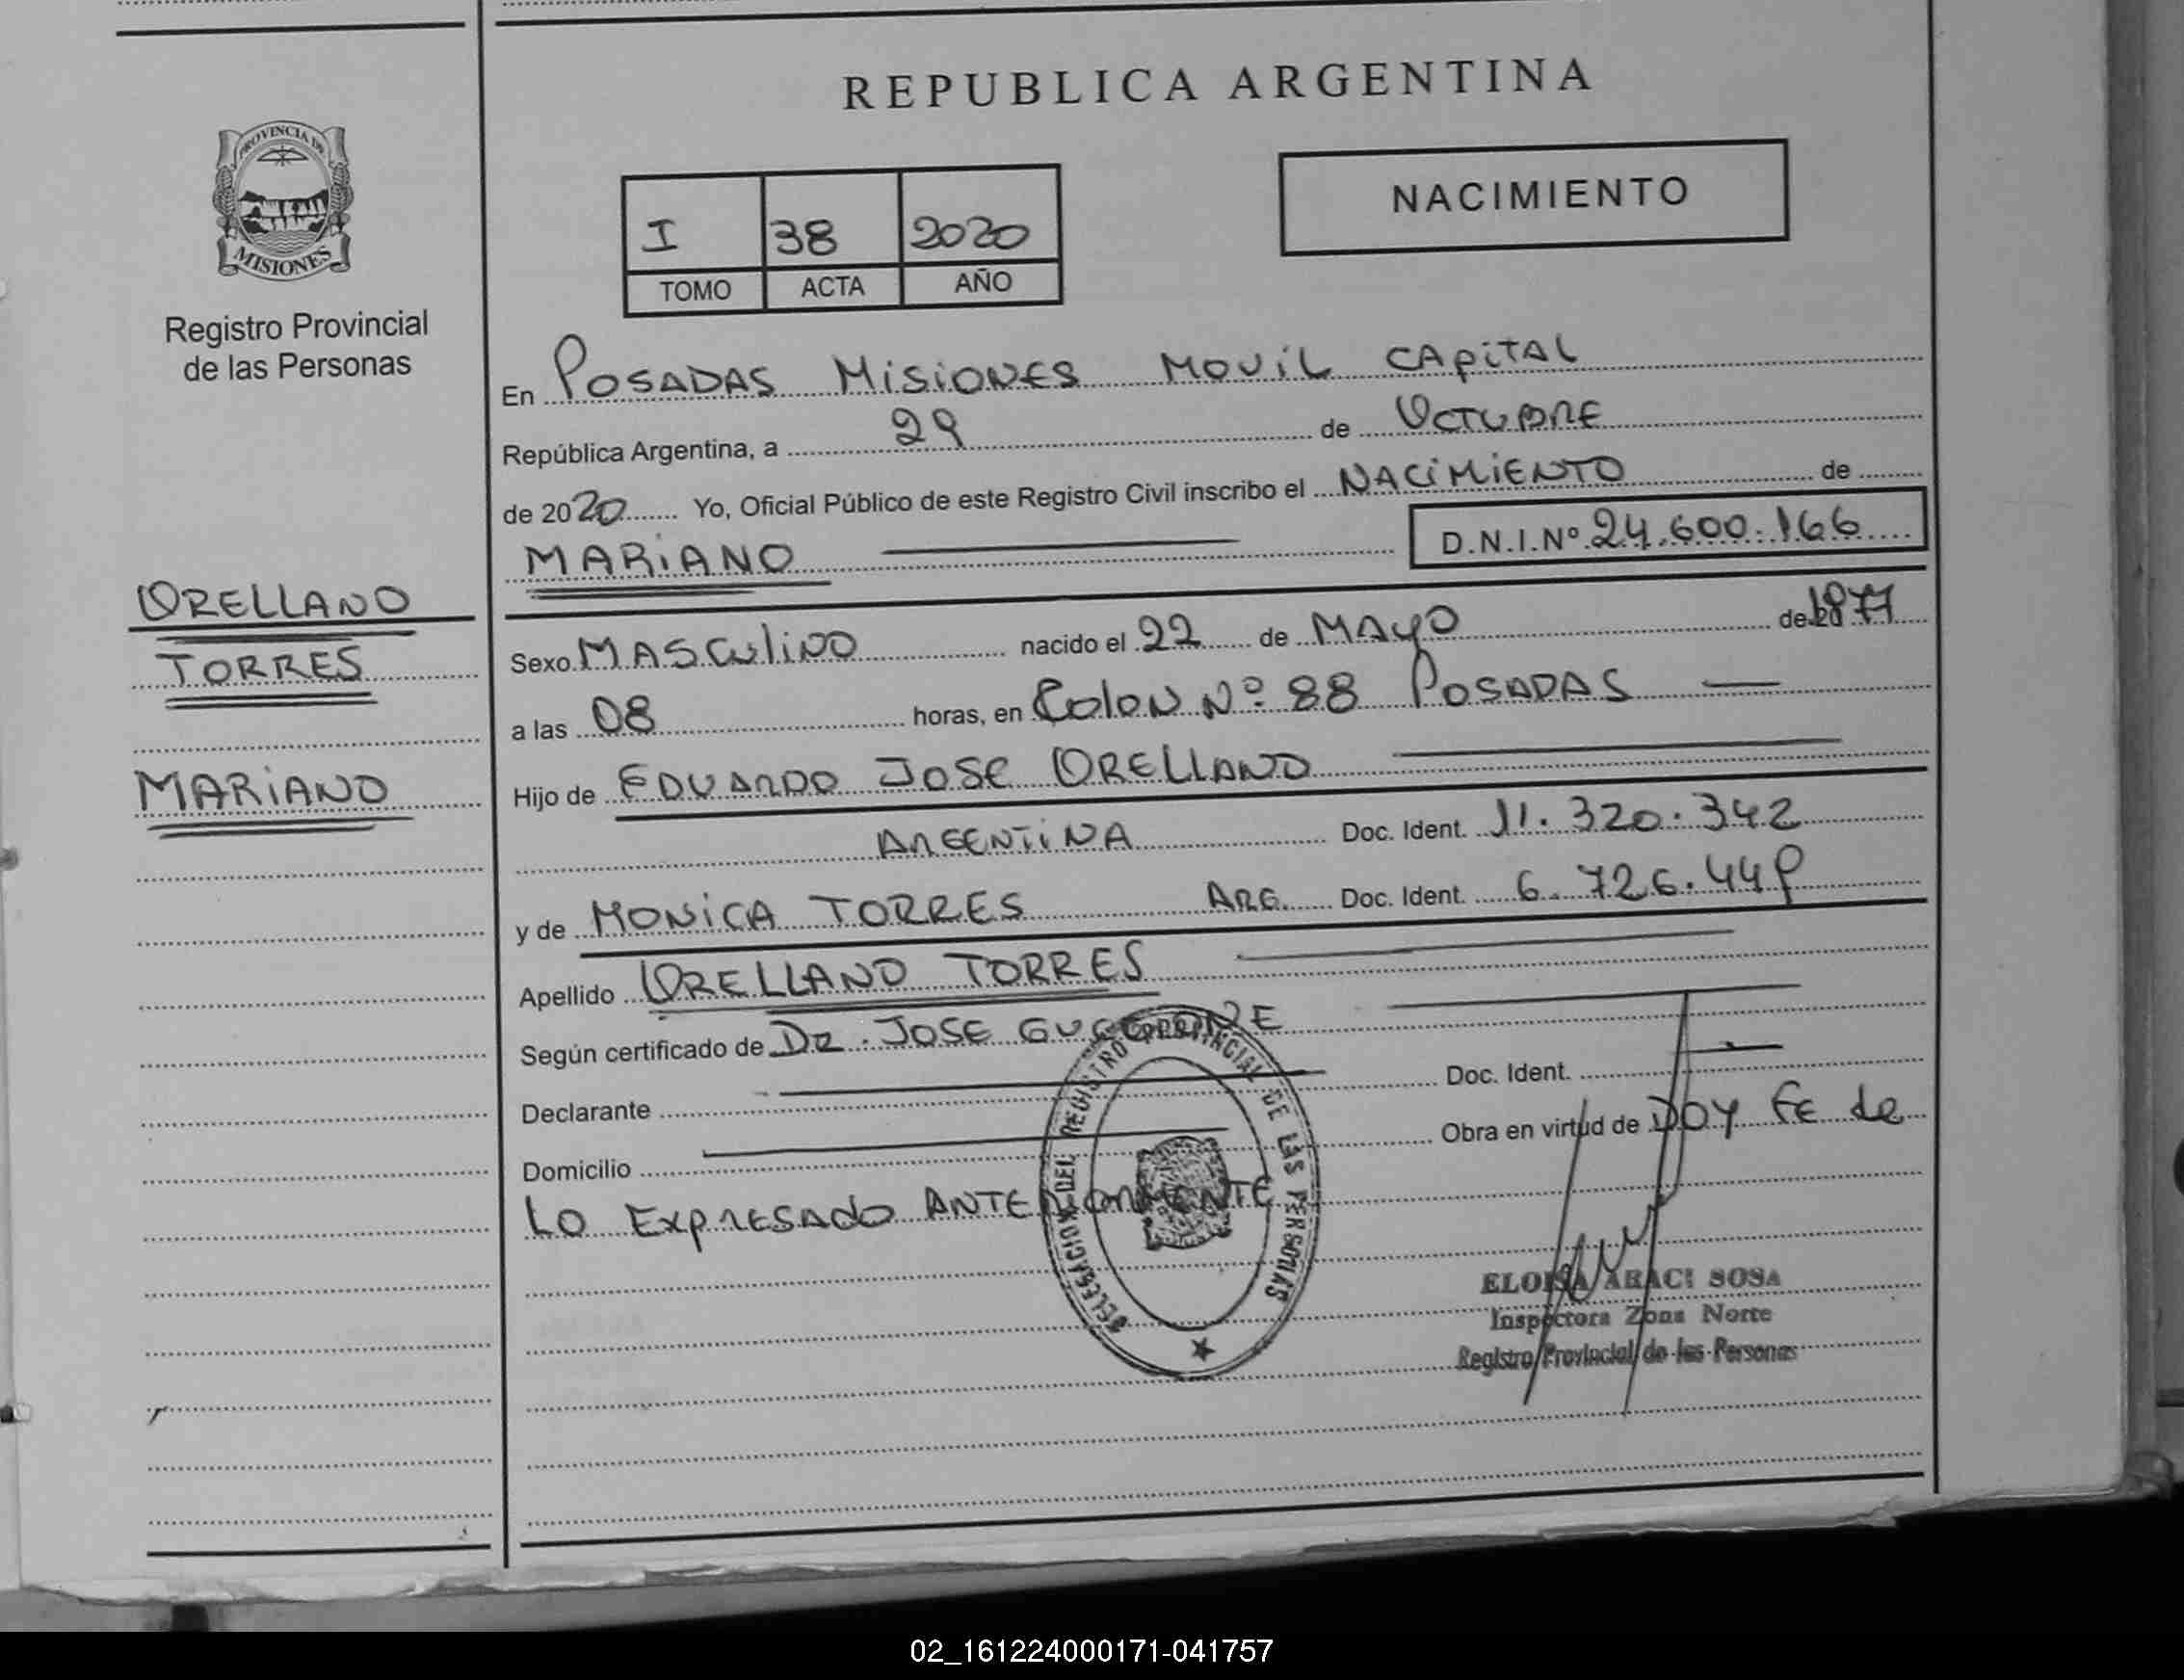 REPUBLICA ARGENTINA
PROVINCIA DE
MISIONES
Registro Provincial
de las Personas
I 38 2020
TOMO ACTA AÑO
NACIMIENTO
En POSADAS MISIONES MOVIL CAPITAL
República Argentina, a 29 de OCTUBRE
de 2020 Yo, Oficial Público de este Registro Civil inscribo el NACIMIENTO de
MARIANO D.N.I.Nº 24.600.166
ORELLANO
TORRES
MARIANO
Sexo MASCULINO nacido el 22 de MAYO de
a las 08 horas, en COLON Nº 88 POSADAS
Hijo de EDUARDO JOSE ORELLANO
ARGENTINA Doc. Ident. 11.320.342
y de MONICA TORRES ARG. Doc. Ident.
Apellido ORELLANO TORRES
Según certificado de DR. JOSE
Declarante Doc. Ident.
Domicilio Obra en virtud de DOY FE de
LO EXPRESADO ANTERIORMENTE
DELEGACION DEL REGISTRO PROVINCIAL DE LAS PERSONAS
ELOISA ARACI SOSA
Inspectora Zona Norte
Registro Provincial de las Personas
02_161224000171-041757